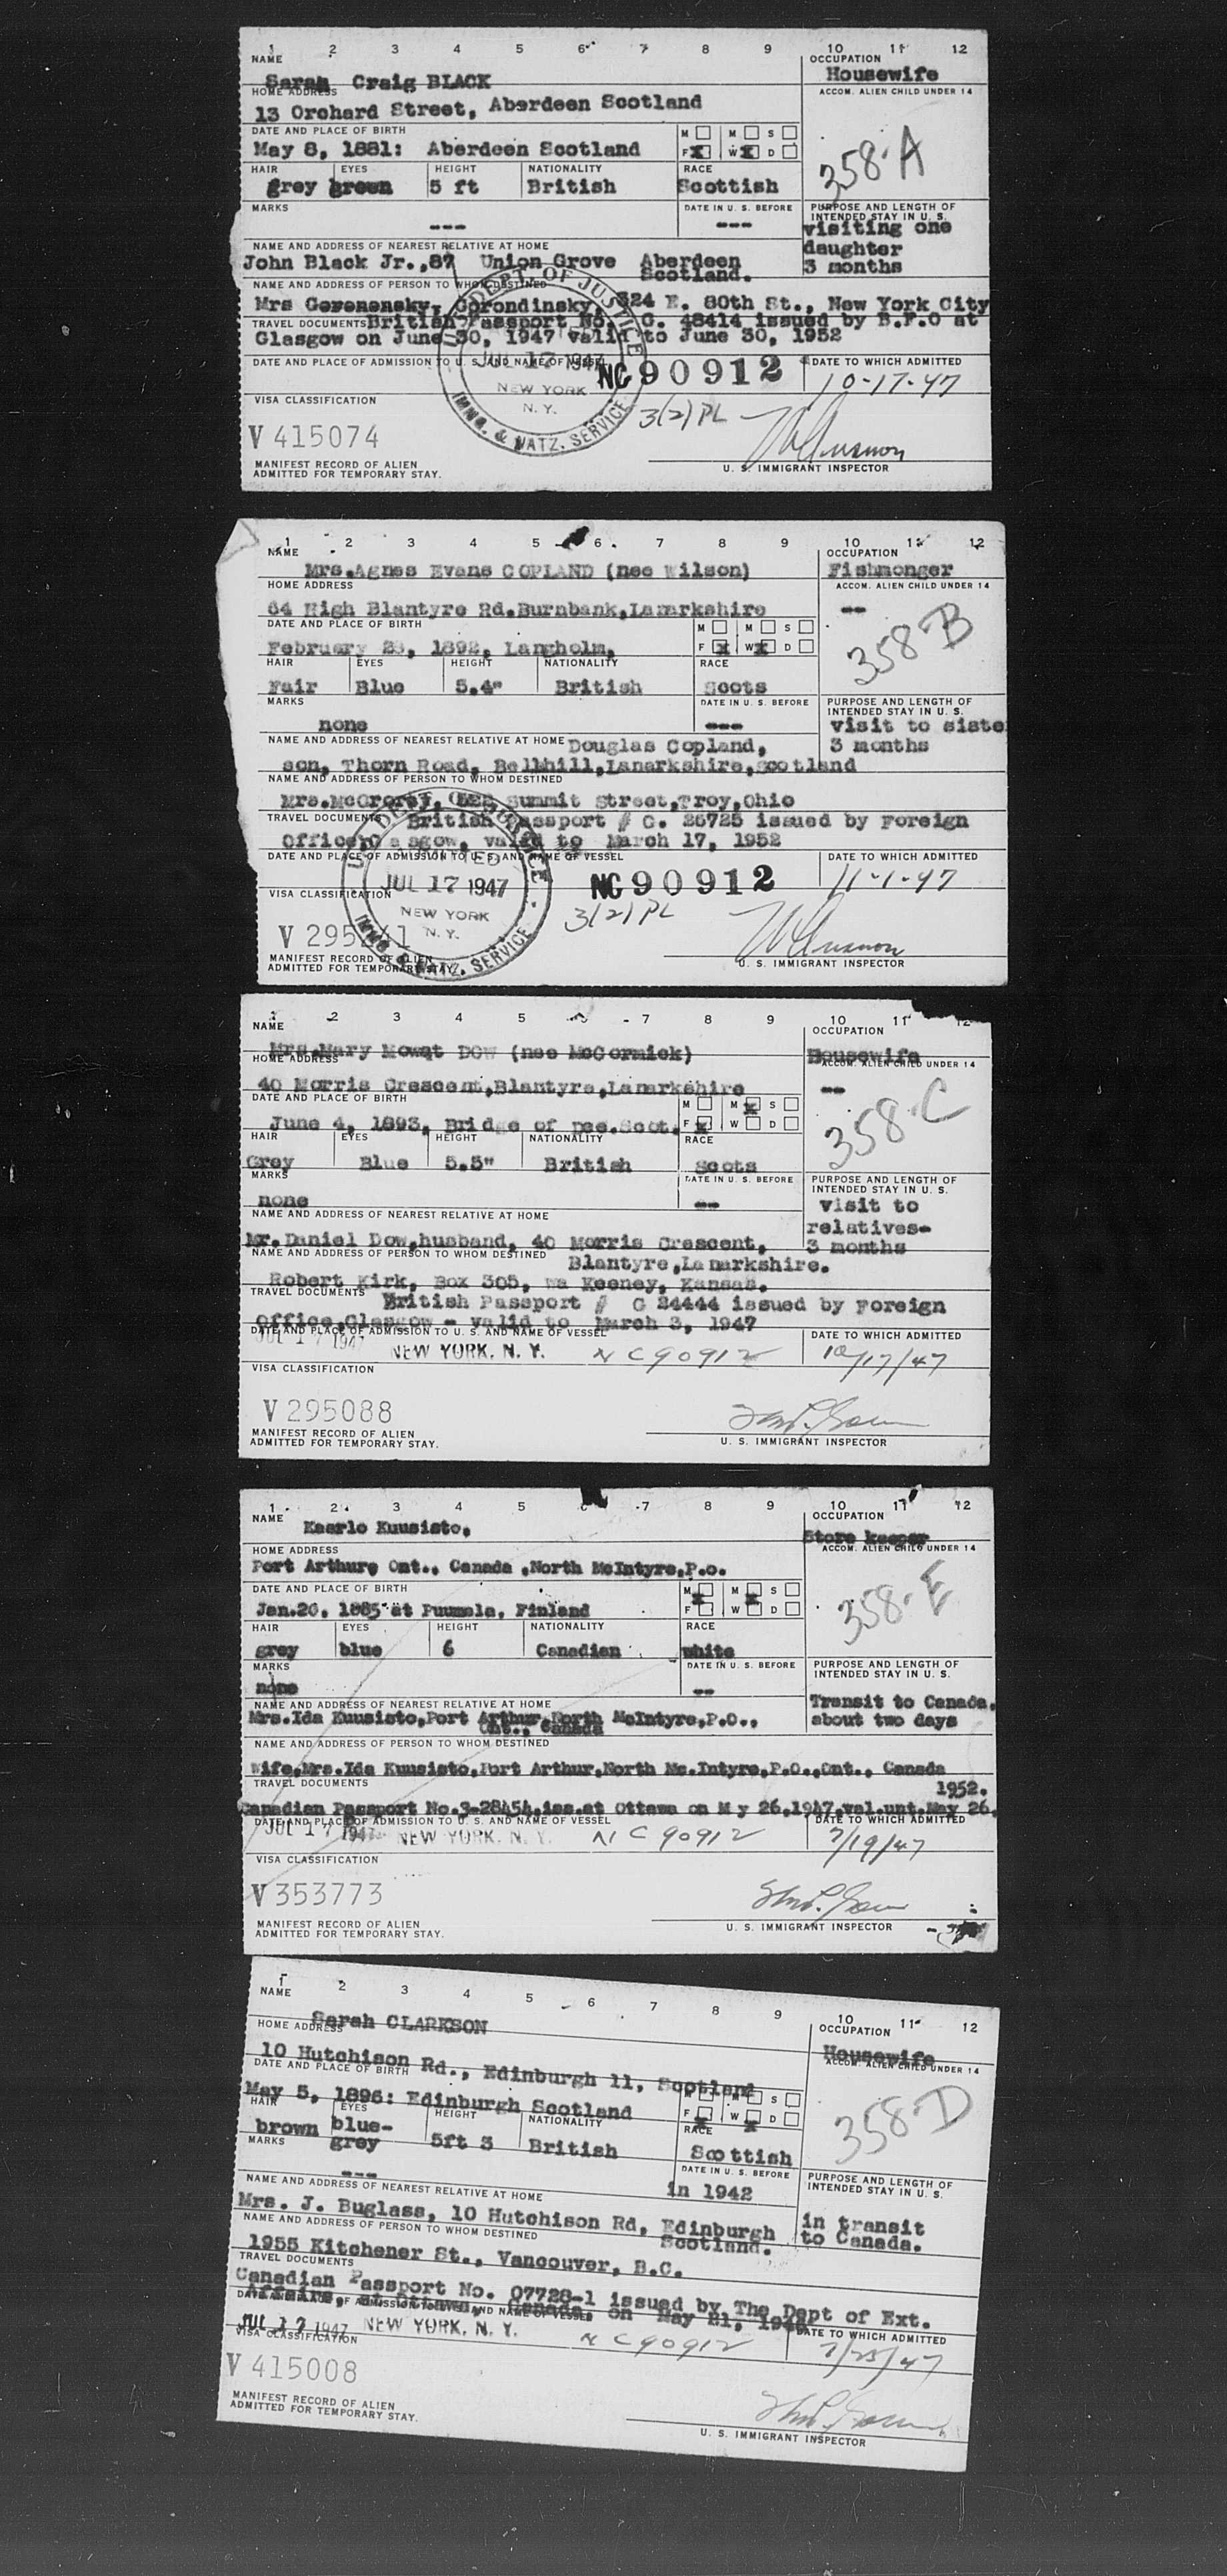 1 2 3 4 5 6 7 8 9 10 11 12
NAME OCCUPATION
Sarah Craig BLACK Housewife
HOME ADDRESS ACCOM. ALIEN CHILD UNDER 14
13 Orchard Street, Aberdeen Scotland
DATE AND PLACE OF BIRTH M M S
May 8, 1881: Aberdeen Scotland F X W X D 358-A
HAIR EYES HEIGHT NATIONALITY RACE
grey green 5 ft British Scottish
MARKS DATE IN U. S. BEFORE PURPOSE AND LENGTH OF INTENDED STAY IN U. S.
--- --- visiting one
NAME AND ADDRESS OF NEAREST RELATIVE AT HOME daughter
John Black Jr.,87 Union Grove Aberdeen 3 months
Scotland.
NAME AND ADDRESS OF PERSON TO WHOM DESTINED
Mrs Gorondinsky, 324 E. 80th St., New York City
TRAVEL DOCUMENTS British Passport No. G. 48414 issued by B.F.O at
Glasgow on June 30, 1947 valid to June 30, 1952
DATE AND PLACE OF ADMISSION TO U. S. AND NAME OF VESSEL DATE TO WHICH ADMITTED
U. S. DEPT. OF JUSTICE JUL 17 1947 NEW YORK N. Y. IMMG. & NATZ. SERVICE
NC 90912 10-17-47
VISA CLASSIFICATION 3(2) PL
V 415074
MANIFEST RECORD OF ALIEN
ADMITTED FOR TEMPORARY STAY. U. S. IMMIGRANT INSPECTOR
1 2 3 4 5 6 7 8 9 10 11 12
NAME OCCUPATION
Mrs.Agnes Evans COPLAND (nee Wilson) Fishmonger
HOME ADDRESS ACCOM. ALIEN CHILD UNDER 14
64 High Blantyre Rd.Burnbank,Lanarkshire --
DATE AND PLACE OF BIRTH M M S
February 23, 1892, Langholm, F X W X D 358-B
HAIR EYES HEIGHT NATIONALITY RACE
Fair Blue 5.4" British Scots
MARKS DATE IN U. S. BEFORE PURPOSE AND LENGTH OF INTENDED STAY IN U. S.
none --- visit to siste
NAME AND ADDRESS OF NEAREST RELATIVE AT HOME Douglas Copland, 3 months
son, Thorn Road, Bellhill,Lanarkshire,Scotland
NAME AND ADDRESS OF PERSON TO WHOM DESTINED
Mrs.McCrorey, Summit Street,Troy,Ohio
TRAVEL DOCUMENTS British Passport # C. 26725 issued by Foreign
Office,Glasgow, valid to March 17, 1952
DATE AND PLACE OF ADMISSION TO U. S. AND NAME OF VESSEL DATE TO WHICH ADMITTED
U. S. DEPT. OF JUSTICE ADMITTED JUL 17 1947 NEW YORK N. Y. IMMG. & NATZ. SERVICE
NC 90912 11-1-47
VISA CLASSIFICATION 3(2) PL
V 295241
MANIFEST RECORD OF ALIEN
ADMITTED FOR TEMPORARY STAY. U. S. IMMIGRANT INSPECTOR
1 2 3 4 5 7 8 9 10 11 12
NAME OCCUPATION
Mrs.Mary Mowat DOW (nee McCormick) Housewife
HOME ADDRESS ACCOM. ALIEN CHILD UNDER 14
40 Morris Crescent,Blantyre,Lanarkshire --
DATE AND PLACE OF BIRTH M M X S
June 4, 1893, Bridge of Dee.Scot. F X W D 358-C
HAIR EYES HEIGHT NATIONALITY RACE
Grey Blue 5.5" British Scots
MARKS DATE IN U. S. BEFORE PURPOSE AND LENGTH OF INTENDED STAY IN U. S.
none -- visit to
NAME AND ADDRESS OF NEAREST RELATIVE AT HOME relatives-
Mr.Daniel Dow,husband, 40 Morris Crescent, 3 months
NAME AND ADDRESS OF PERSON TO WHOM DESTINED Blantyre,Lanarkshire.
Robert Kirk, Box 305, Wa Keeney, Kansas.
TRAVEL DOCUMENTS British Passport # C 24444 issued by Foreign
Office,Glasgow - valid to March 3, 1947
DATE AND PLACE OF ADMISSION TO U. S. AND NAME OF VESSEL DATE TO WHICH ADMITTED
JUL 17 1947 NEW YORK, N. Y. NC 90912 10/17/47
VISA CLASSIFICATION
V 295088
MANIFEST RECORD OF ALIEN
ADMITTED FOR TEMPORARY STAY. U. S. IMMIGRANT INSPECTOR
1 2 3 4 5 6 7 8 9 10 11 12
NAME OCCUPATION
Kaarlo Kuusisto, Store keeper
HOME ADDRESS ACCOM. ALIEN CHILD UNDER 14
Port Arthur, Ont., Canada ,North McIntyre,P.o.
DATE AND PLACE OF BIRTH M X M X S
Jan.26, 1885 at Puumala, Finland F W D 358-E
HAIR EYES HEIGHT NATIONALITY RACE
grey blue 6 Canadian white
MARKS DATE IN U. S. BEFORE PURPOSE AND LENGTH OF INTENDED STAY IN U. S.
none --
NAME AND ADDRESS OF NEAREST RELATIVE AT HOME Transit to Canada,
Mrs.Ida Kuusisto,Port Arthur,North McIntyre,P.O., about two days
Ont., Canada
NAME AND ADDRESS OF PERSON TO WHOM DESTINED
Wife,Mrs.Ida Kuusisto,Port Arthur,North Mc.Intyre,P.O.,Ont., Canada
TRAVEL DOCUMENTS 1952.
Canadian Passport No.3-28454,iss.at Ottawa on M y 26,1947,val.unt.May 26,
DATE AND PLACE OF ADMISSION TO U. S. AND NAME OF VESSEL DATE TO WHICH ADMITTED
JUL 17 1947 NEW YORK, N. Y. NC 90912 7/19/47
VISA CLASSIFICATION
V 353773
MANIFEST RECORD OF ALIEN
ADMITTED FOR TEMPORARY STAY. U. S. IMMIGRANT INSPECTOR
1 2 3 4 5 6 7 8 9 10 11 12
NAME OCCUPATION
Sarah CLARKSON Housewife
HOME ADDRESS ACCOM. ALIEN CHILD UNDER 14
10 Hutchison Rd., Edinburgh 11, Scotland
DATE AND PLACE OF BIRTH M M S
May 5, 1896: Edinburgh Scotland F X W X D 358-D
HAIR EYES HEIGHT NATIONALITY RACE
brown blue-
grey 5ft 3 British Scottish
MARKS DATE IN U. S. BEFORE PURPOSE AND LENGTH OF INTENDED STAY IN U. S.
--- in 1942
NAME AND ADDRESS OF NEAREST RELATIVE AT HOME
Mrs. J. Buglass, 10 Hutchison Rd, Edinburgh in transit
Scotland. to Canada.
NAME AND ADDRESS OF PERSON TO WHOM DESTINED
1955 Kitchener St., Vancouver, B.C.
TRAVEL DOCUMENTS
Canadian Passport No. 07728-1 issued by The Dept of Ext.
Affairs, at Ottawa, Canada, on May 21,
DATE AND PLACE OF ADMISSION TO U. S. AND NAME OF VESSEL DATE TO WHICH ADMITTED
JUL 17 1947 NEW YORK, N. Y. NC 90912 7/25/47
VISA CLASSIFICATION
V 415008
MANIFEST RECORD OF ALIEN
ADMITTED FOR TEMPORARY STAY. U. S. IMMIGRANT INSPECTOR